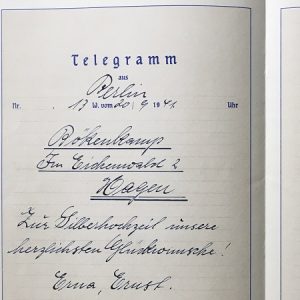 Telegramm
aus
Berlin
Nr. 13 W. vom 20/9 1941 Uhr
Bökenkamp
Im Eichenwald 2
Hagen
Zur Silberhochzeit unsere
herzlichsten Glückwünsche!
Erna, Ernst.